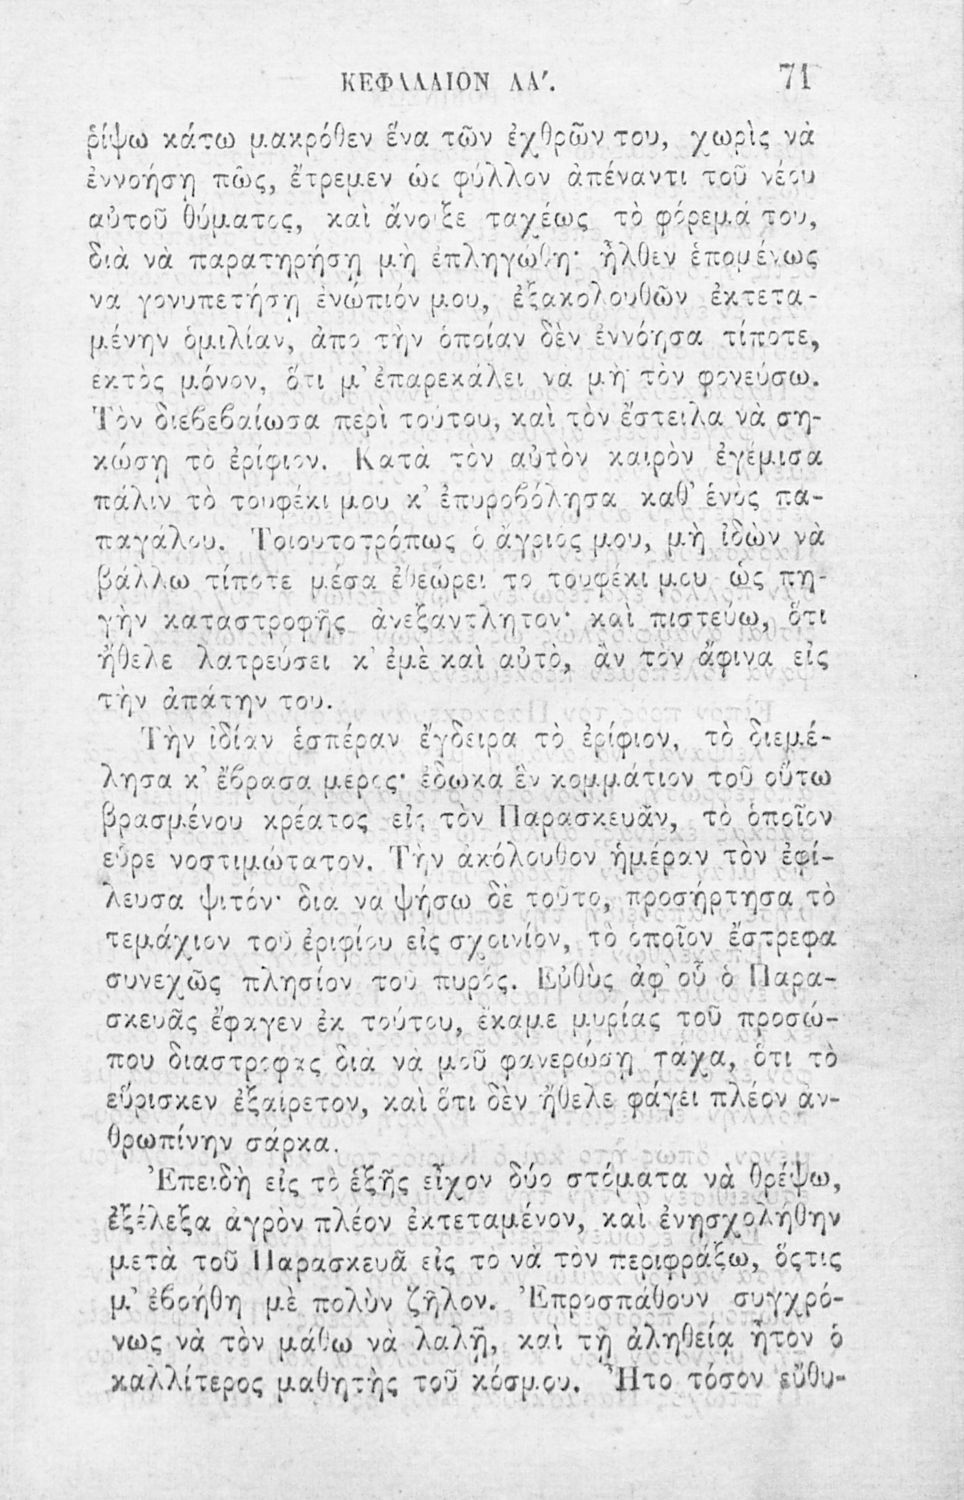 ΚΕΦΑΛΑΙΟΝ ΛΑ'. 71
ῥίψω κάτω μακρόθεν ἕνα τῶν ἐχθρῶν του, χωρὶς νὰ
ἐννοήσῃ πῶς, ἔτρεμεν ὡς φύλλον ἀπέναντι τοῦ νέου
αὐτοῦ θύματος, καὶ ἄνοιξε ταχέως τὸ φόρεμά του,
διὰ νὰ παρατηρήσῃ μὴ ἐπληγώθη· ἦλθεν ἑπομένως
να γονυπετήσῃ ἐνώπιόν μου, ἐξακολουθῶν ἐκτετα-
μένην ὁμιλίαν, ἀπο τὴν ὁποίαν δὲν ἐννόησα τίποτε,
ἐκτὸς μόνον, ὅτι μ' ἐπαρεκάλει να μὴ τὸν φονεύσω.
Τὸν διεβεβαίωσα περὶ τούτου, καὶ τὸν ἔστειλα νὰ ση-
κώσῃ τὸ ἐρίφιον. Κατὰ τὸν αὐτὸν καιρὸν ἐγέμισα
πάλιν τὸ τουφέκι μου κ' ἐπυροβόλησα καθ' ἑνὸς πα-
παγάλου. Τοιουτοτρόπως ὁ ἄγριος μου, μὴ ἰδὼν νὰ
βάλλω τίποτε μέσα ἐθεώρει τὸ τουφέκι μου ὡς πη-
γὴν καταστροφῆς ἀνεξαντλητον· καὶ πιστεύω, ὅτι
ἤθελε λατρεύσει κ' ἐμὲ καὶ αὐτὸ, ἂν τὸν ἄφινα εἰς
τὴν ἀπάτην του.
Τὴν ἰδίαν ἑσπέραν ἔγδειρα τὸ ἐρίφιον, τὸ διεμέ-
λησα κ' ἔβρασα μερος· ἔδωκα ἓν κομμάτιον τοῦ οὕτω
βρασμένου κρέατος εἰς τὸν Παρασκευᾶν, τὸ ὁποῖον
εὗρε νοστιμώτατον. Τὴν ἀκόλουθον ἡμέραν τὸν ἐφί-
λευσα ψιτόν· δια να ψήσω δὲ τοῦτο, προσήρτησα τὸ
τεμάχιον τοῦ ἐριφίου εἰς σχοινίον, τὸ ὁποῖον ἔστρεφα
συνεχῶς πλησίον τοῦ πυρός. Εὐθὺς ἀφ' οὗ ὁ Παρα-
σκευᾶς ἔφαγεν ἐκ τούτου, ἔκαμε μυρίας τοῦ προσώ-
που διαστροφὰς διὰ νὰ μοῦ φανερώσῃ τάχα, ὅτι τὸ
εὕρισκεν ἐξαίρετον, καὶ ὅτι δὲν ἤθελε φάγει πλέον ἀν-
θρωπίνην σάρκα.
Ἐπειδὴ εἰς τὸ ἑξῆς εἶχον δύο στόματα νὰ θρέψω,
ἐξέλεξα ἀγρὸν πλέον ἐκτεταμένον, καὶ ἐνησχολήθην
μετὰ τοῦ Παρασκευᾶ εἰς το νὰ τὸν περιφράξω, ὅςτις
μ' ἐβοήθη μὲ πολὺν ζῆλον. Ἐπροσπάθουν συγχρό-
νως νὰ τὸν μάθω νὰ λαλῇ, καὶ τῇ ἀληθείᾳ ἦτον ὁ
καλλίτερος μαθητὴς τοῦ κόσμου. Ἦτο τόσον εὔθυ-